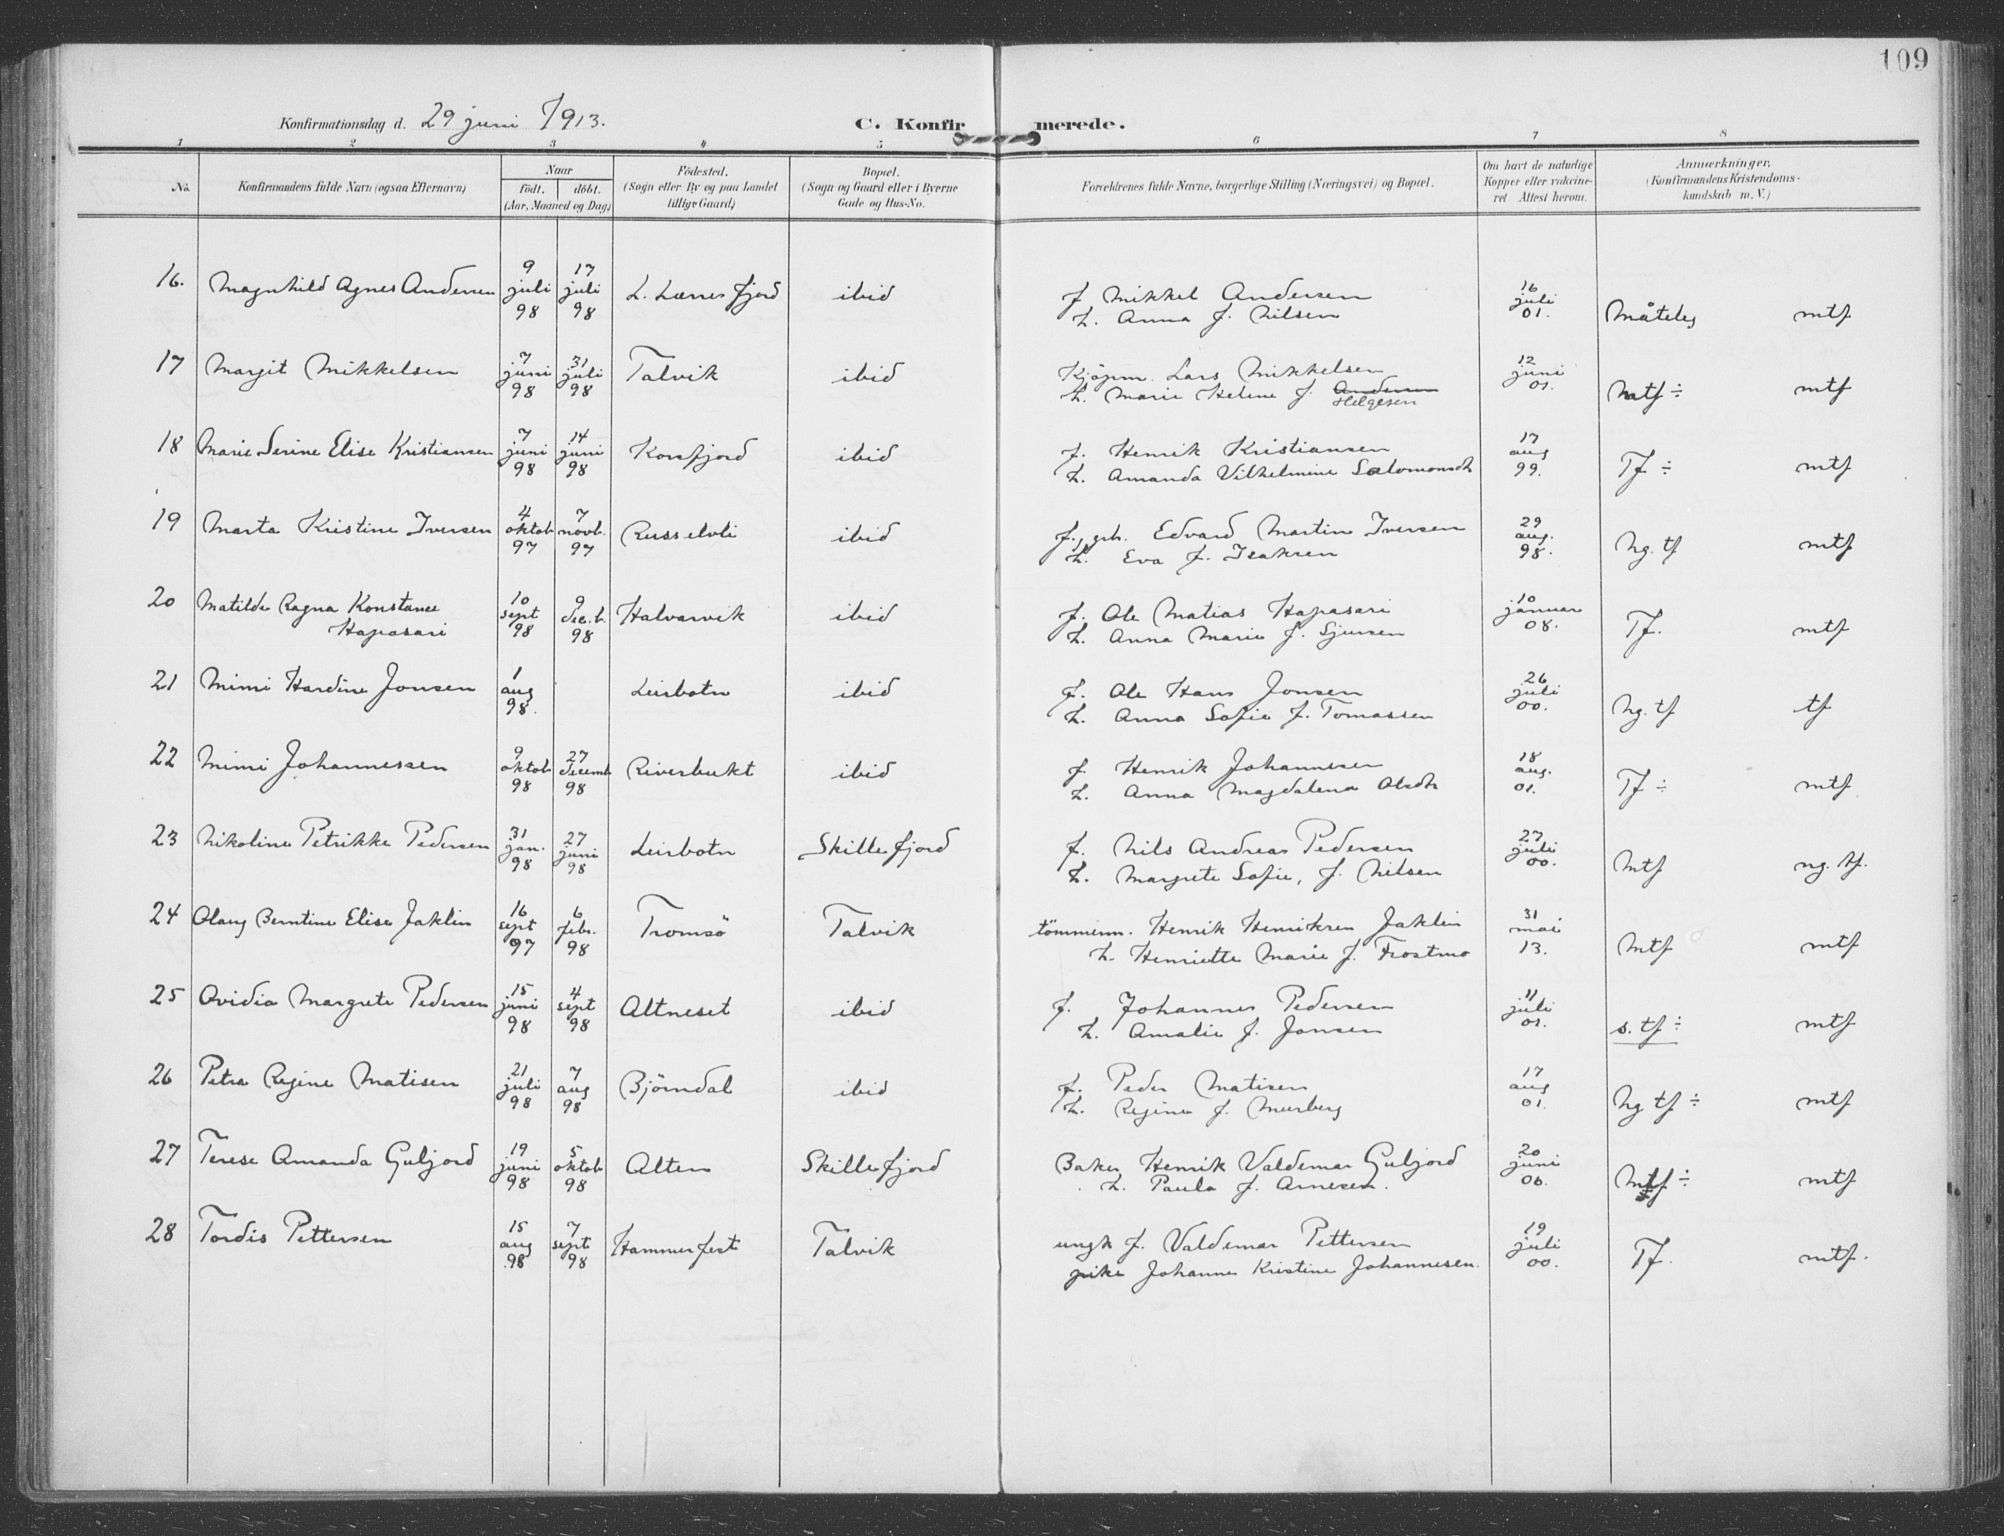 109
Konfirmationsdag d. 29 juni 1913.
C. Konfirmerede.
1 2 3 4 5 6 7 8
No.
Konfirmandens fulde Navn (ogsaa Efternavn)
Naar
født. døbt.
(Aar, Maaned og Dag)
Fødested.
(Sogn eller By og paa Landet
tillige Gaard)
Bopæl.
(Sogn og Gaard eller i Byerne
Gade og Hus-No.
Forældrenes fulde Navne, borgerlige Stilling (Næringsvei) og Bopæl.
Om havt de naturlige
Kopper eller vakcine-
ret Attest herom.
Anmærkninger,
(Konfirmandens Kristendoms-
kundskab m. V.)
16. Magnhild Agnes Andersen 9 juli 98 17 juli 98 L. Lerresfjord ibid
f. Mikkel Andersen 16 juli 01. Måteleg mtf
h. Anna f. Nilsen
17 Margit Mikkelsen 7 juni 98 31 juli 98 Talvik ibid
Kjöpm. Lars Mikkelsen 12 juni 01. mtf ÷ mtf
h. Marie Helene f. Andersen
Helgesen
18 Marie Serine Elise Kristiansen 7 juni 98 14 juni 98 Korsfjord ibid
f. Henrik Kristiansen 17 aug 99. Tf ÷ mtf
h. Amanda Vilhelmine Salomonsdt
19 Marta Kristine Iversen 4 oktob 97 7 novb. 97 Russelvli ibid
f., grb. Edvard Martin Iversen 29 aug. 98. ng. tf mtf
h. Eva f. Isaksen
20 Matilde Ragna Konstanse 10 sept 98 9 dec.b. 98 Halvarvik ibid
Hapasari
f. Ole Matias Hapasari 10 januar 08. Tf. mtf
h. Anna Marie f. Sjursen
21 Mimi Hardine Jonsen 1 aug 98. Leirbotn ibid
f. Ole Hans Jonsen 26 juli 00. ng. tf tf
h. Anna Sofie f. Tomassen
22 Mimi Johannessen 9 oktob 98 27 decemb 98 Riverbukt ibid
f. Henrik Johannesen 18 aug. 01. Tf ÷ mtf
h. Anna Magdalena Olsdt
23 Nikoline Petrikke Pedersen 31 jan. 98 27 juni 98 Leirbotn Skillefjord
f. Nils Andreas Pedersen 27 juli 00. Mtf ng. tf.
h. Margrete Sofie, f. Nilsen
24 Olaug Berntine Elise Jaklin 16 sept 97 6 febr. 98 Tromsö Talvik
tömmerm. Henrik Henriksen Jaklin 31 mai 13. Mtf mtf
h. Henriette Marie f. Frostmo
25 Ovidia Margrete Pedersen 15 juni 98 4 sept 98 Altneset ibid
f. Johannes Pedersen 11 juli 01. s. tf ÷ mtf
h. Amalie f. Jonsen
26 Petra Regine Matisen 21 juli 98 7 aug 98 Björndal ibid
f. Peder Matisen 17 aug 01. Ng tf ÷ mtf
h. Regine f. Murberg
27 Terese Amanda Guljord 19 juni 98 5 oktob 98 Alten Skillefjord
Baker Henrik Valdemar Guljord 20 juni 06. Mtf ÷ mtf
h. Paula f. Arnesen.
28 Tordis Pettersen 15 aug 98 7 sept 98 Hammerfest Talvik
ungk f. Valdemar Pettersen 19 juli 00. Tf. mtf.
pike Johanne Kristine Johannesen.